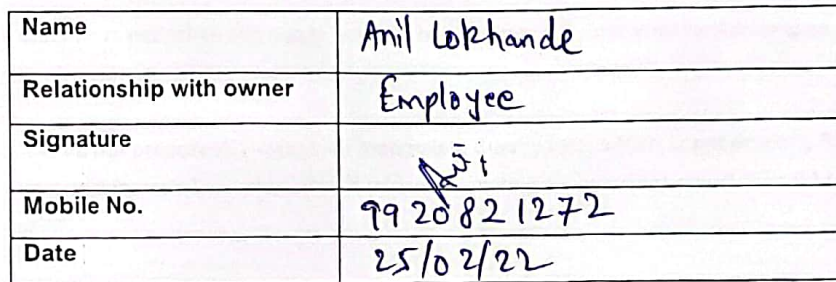 Name Anil Lokhande
Relationship with owner Employee
Signature
Mobile No. 9920821272
Date 25/02/22